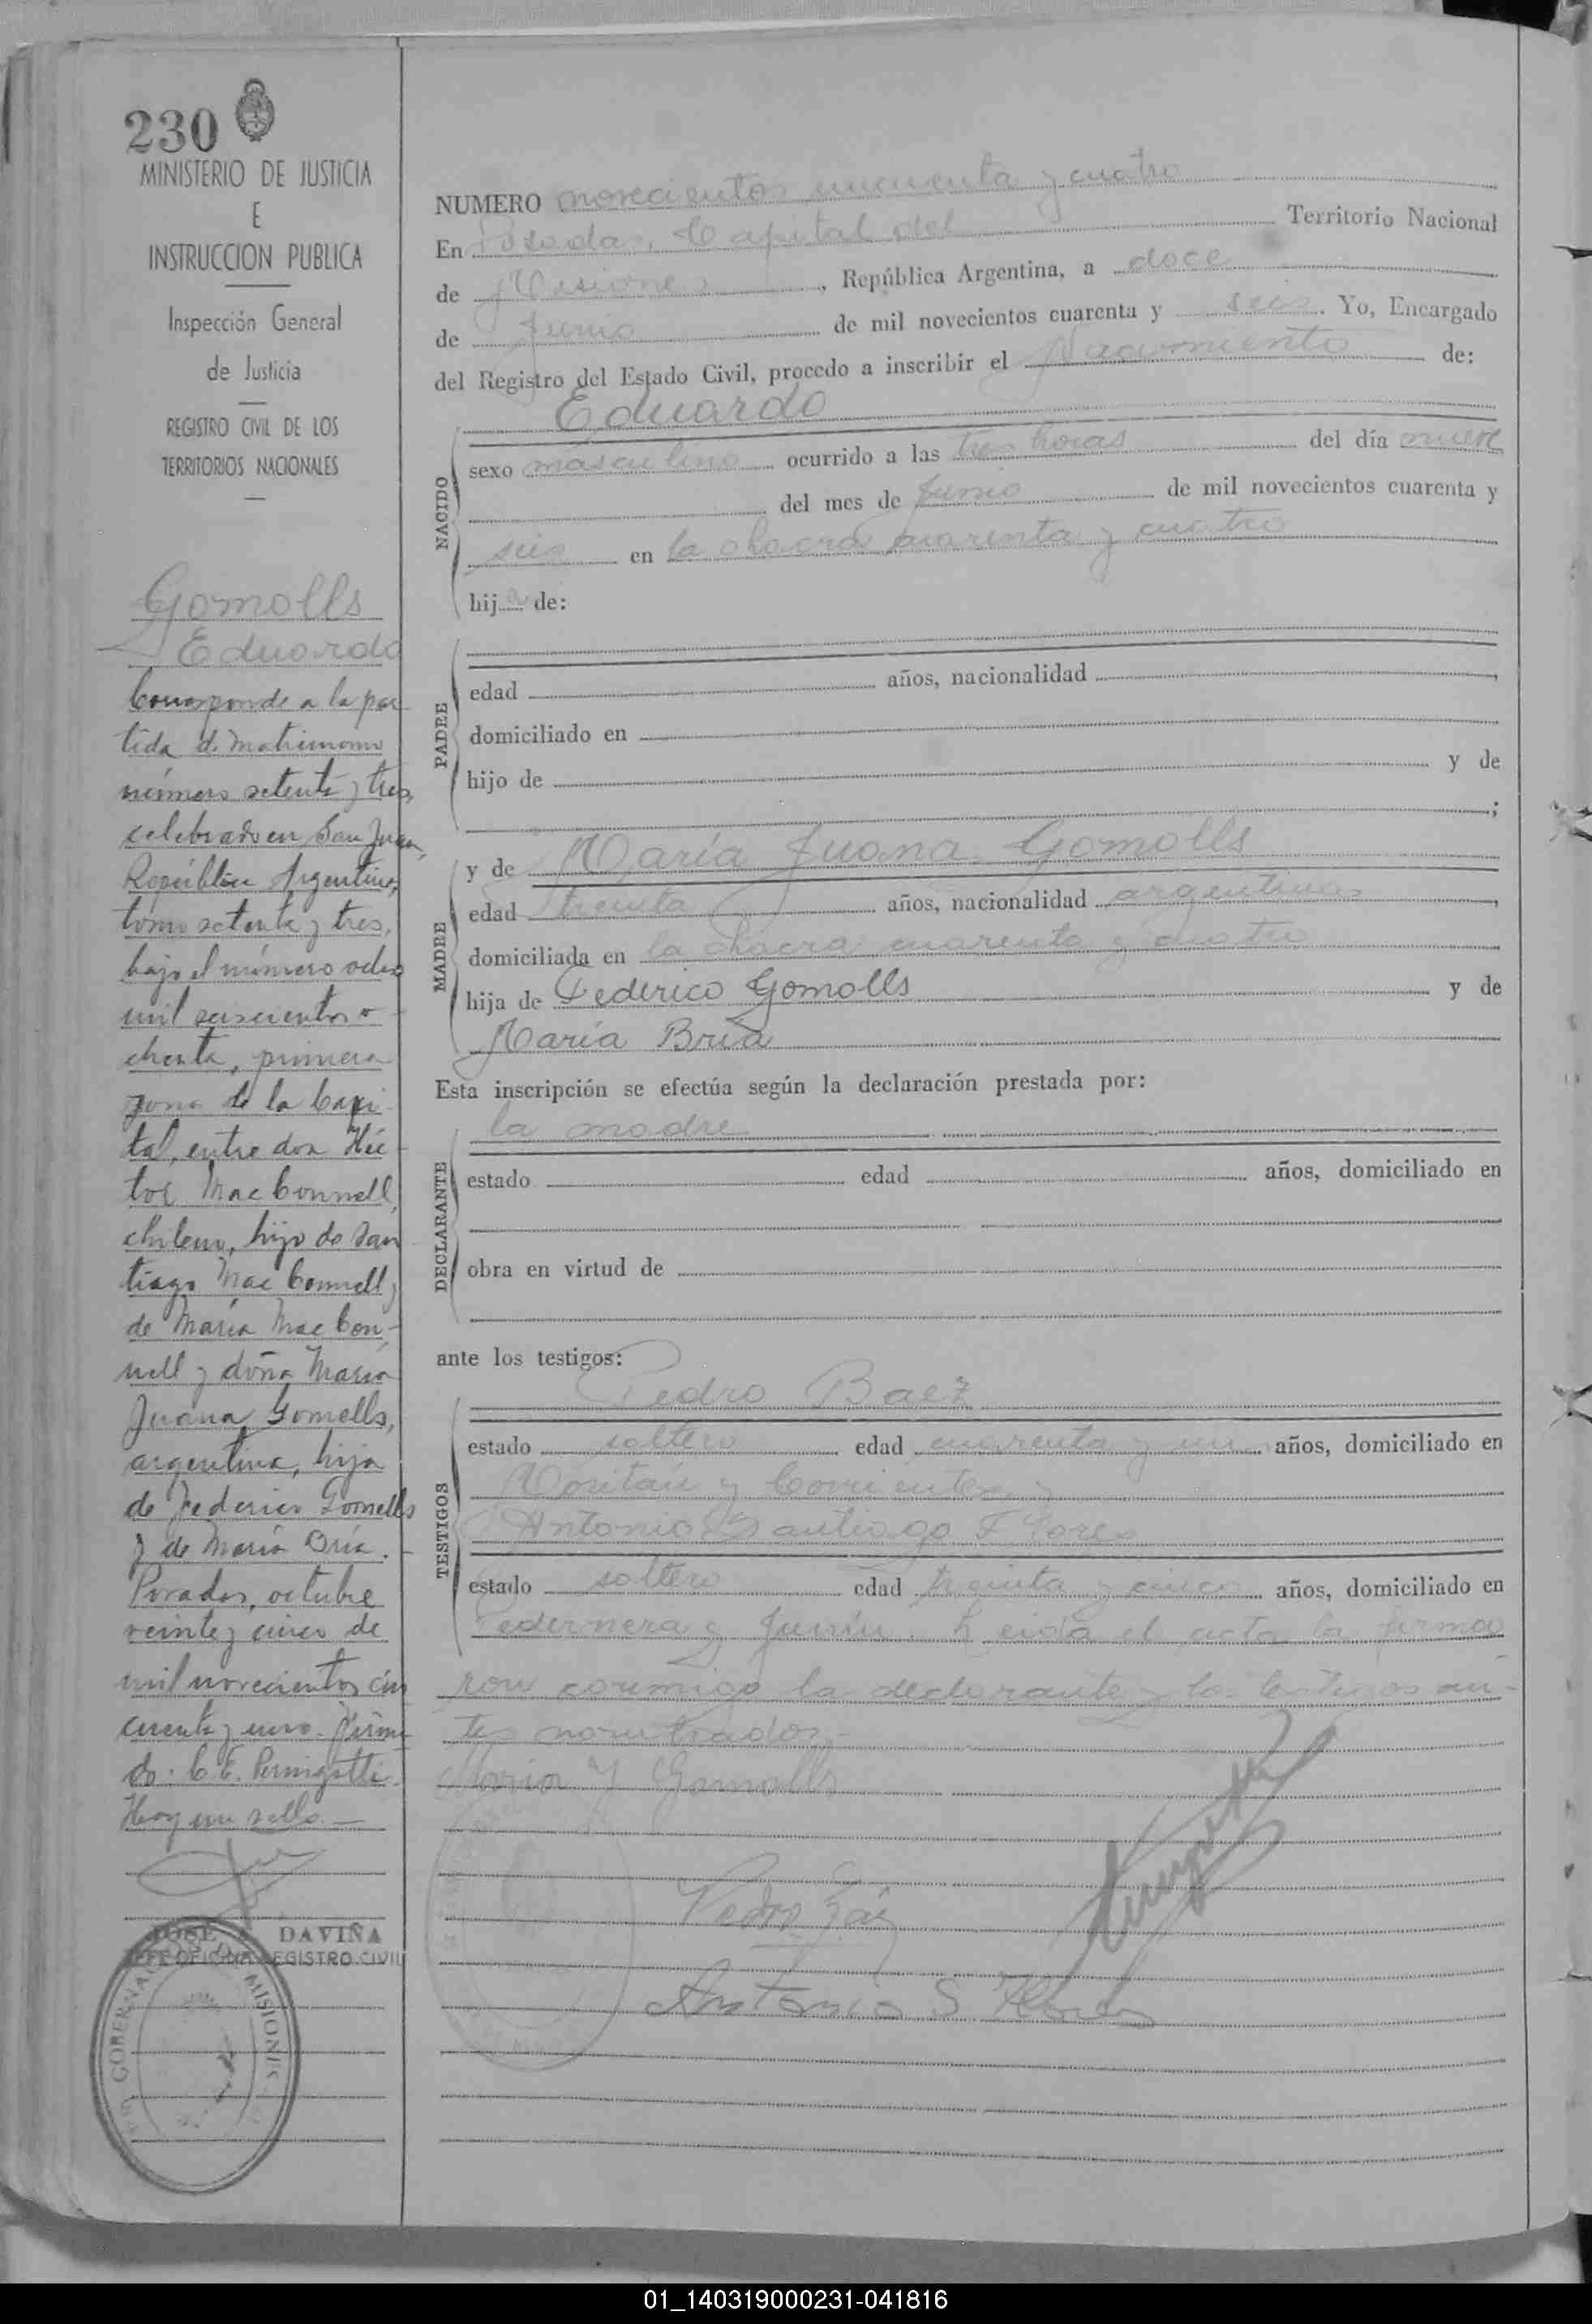 230
MINISTERIO DE JUSTICIA
E
INSTRUCCION PUBLICA
Inspección General
de Justicia
REGISTRO CIVIL DE LOS
TERRITORIOS NACIONALES
Gomolls
Eduardo
Corresponde a la par
tida de matrimonio
número setenta y tres,
celebrado en San Juan,
República Argentina,
tomo setenta y tres,
bajo el número ocho
mil seiscientos o
chenta, primera
zona de la Capi
tal, entre don Héc
tor Mac Connell,
chileno, hijo de San
tiago Mac Connell y
de María Mac Con-
nell y doña María
Juana Gomolls,
argentina, hija
de Federico Gomolls
y de María Bría.
Posadas, octubre
veinte y cinco de
mil novecientos cin
cuenta y uno. Firma
do: C. E. Pernigotti.
Hay un sello.—
JOSE DAVIÑA
JEFE OFICINA REGISTRO CIVIL
GOBERNAC MISIONES
NUMERO novecientos cincuenta y cuatro
En Posadas, Capital del Territorio Nacional
de Misiones, República Argentina, a doce
de Junio de mil novecientos cuarenta y seis. Yo, Encargado
del Registro del Estado Civil, procedo a inscribir el Nacimiento de:
Eduardo
NACIDO
sexo masculino ocurrido a las tres horas del día nueve
del mes de Junio de mil novecientos cuarenta y
seis en la chacra cuarenta y cuatro
hijo de:
PADRE
edad años, nacionalidad
domiciliado en
hijo de y de
;
MADRE
y de María Juana Gomolls
edad treinta años, nacionalidad argentina
domiciliada en la chacra cuarenta y cuatro
hija de Federico Gomolls y de
María Bría
Esta inscripción se efectúa según la declaración prestada por:
DECLARANTE
la madre
estado edad años, domiciliado en
obra en virtud de
ante los testigos:
TESTIGOS
Pedro Baez
estado soltero edad cuarenta y un años, domiciliado en
y Corrientes y
Antonio Santiago Flores
estado soltero edad treinta y cinco años, domiciliado en
Pedernera y Junín. Leída el acta la firma
ron conmigo la declarante y los testigos an-
tes nombrados.-
María J Gomolls
Pedro Báez
Antonio S Flores
01_140319000231-041816